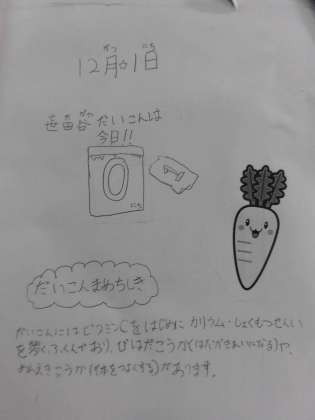 がつ にち
12月01日
世田谷だいこんは
今日!!
0
にち
だいこんまめちしき
だいこんにはビタミンCをはじめに カリウム・しょくもつせんい
を多くふくんでおり、びはだこうか(はだがきれいになる)や、
めんえきこうか(体をつよくする)があります。